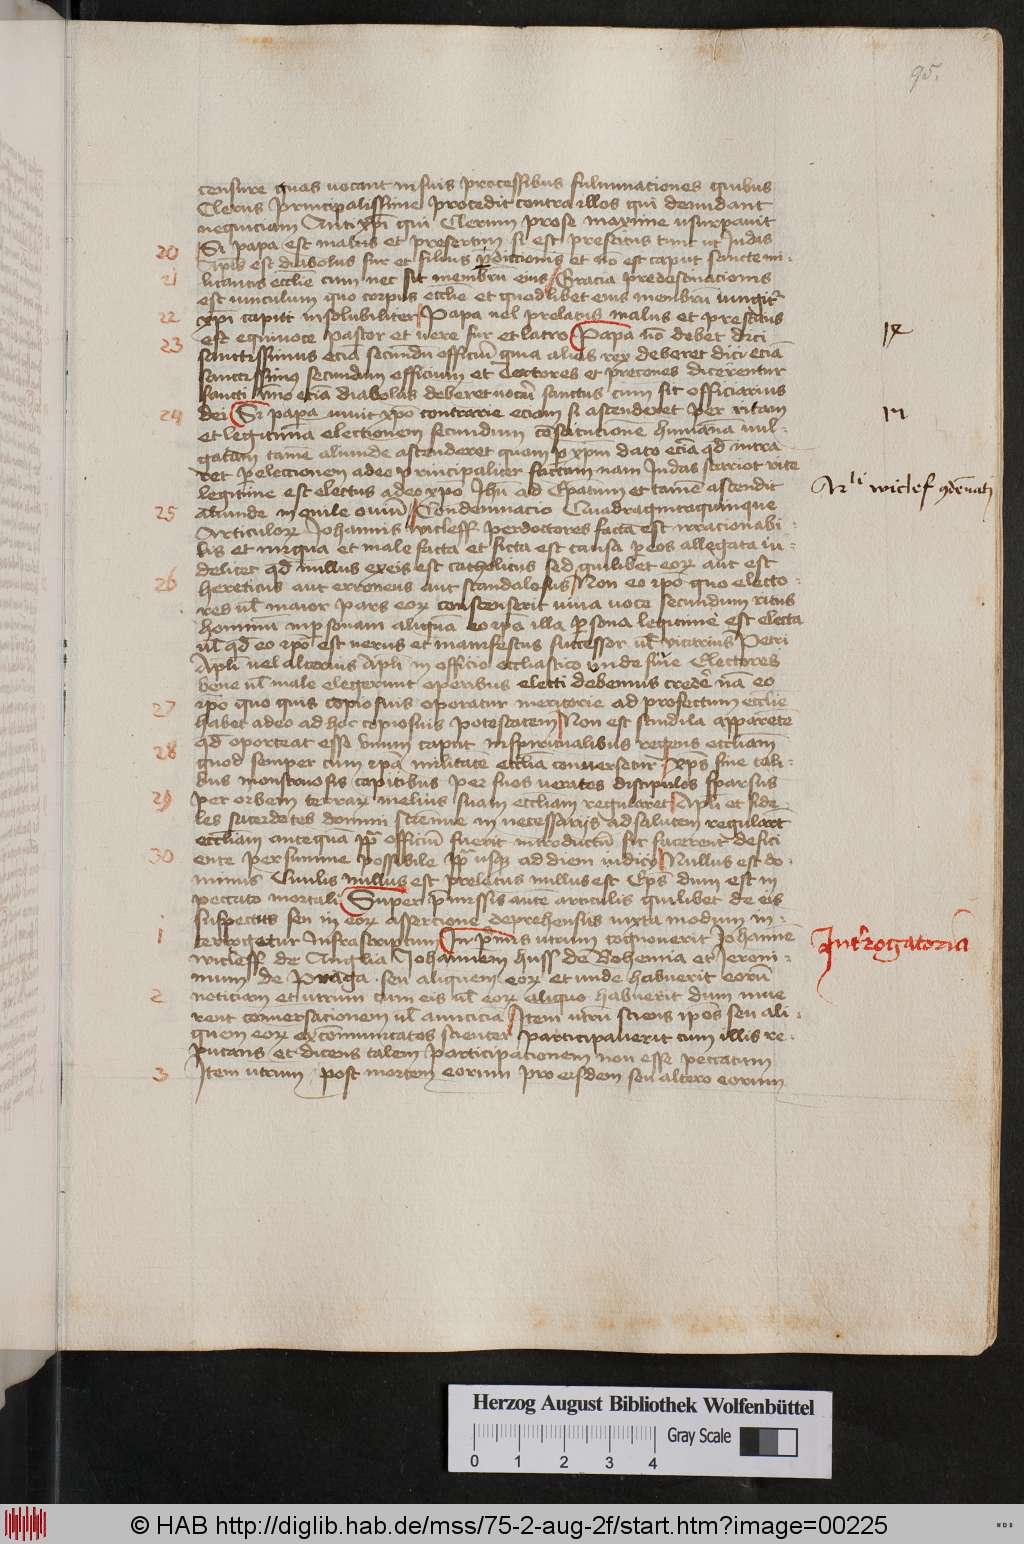 95.
censure quas vocant in suis processibus fulminationes quibus
Clerus principalissime procedit contra illos qui denudant
nequiciam Anti xp̄i qui Clerum pro se maxime usurpauit
20 Si papa est malus et presertim si est prescitus tunc ut Judas
Aplūs est diabolus fur et filius ꝑdicionis et nō est caput sancte mi-
21 litantis ecclīe cum nec sit membrū eius Gracia predestinacionis
est vinculum quo corpus ecclīe et quodlibet eius membrū iungitr̄
22 xp̄o capiti insolubiliter Papa vel prelatus malus et prescitus
23 est equiuoce pastor et vere fur et latro Papa nō debet dici
sanctissimus eciā secundū officiū quia alias rex deberet dici eciā
sanctissimꝯ secundum officium et Tortores et precones dicerentur
sancti ymo eciā diabolus deberet vocari sanctus cum sit officiarius
24 dei Si papa viuit xp̄o contrarie eciam si ascenderet per ritam
et legitimā electionem secundum cōstitucionē humana vul-
gatam tamē aliunde ascenderet quam ꝑ xp̄m dato eciā qd̄ intra
ret ꝑ eleccionem a deo principaliter factam nam Judas scariot rite
legitime est electus a deo xp̄o Jhū ad Ep̄atum et tamē ascendit
25 aliunde in ouile ouiū Condemnacio Quadragintaquinque
Articuloꝝ Johannis wicleff per doctores facta est irracionabi-
lis et iniqua et male facta et ficta est causa ꝑ eos allegata vi-
delicet qd̄ nullus ex eis est catholicus sed quilibet eoꝝ aut est
26 hereticus aut erroneus aut scandalosus Non eo ip̄o quo electo-
res vl̄ maior pars eoꝝ consenserit viua voce secundum ritus
hominū in ꝑsonam aliquā eo ip̄o illa ꝑsona legitime est electa
vl̄ qd̄ eo ip̄o est verus et manifestus successor vl̄ vicarius Petri
Apli vel alterius Apli in officio eccliastico vnde siue Electores
bene vl̄ male elegerunt operibus electi debemus credē nā eo
27 ip̄o quo quis copiosius operatur meritorie ad profectum ecclīe
habet a deo ad hoc copiosius potestatem Non est scintilla apparēcie
28 qd̄ oporteat esse vnum caput in spiritualibus regens eccliam
quod semper cum ip̄a militāte ecclīa conuersetur xp̄s sine tali-
bus monstruosis capitibus per suos veraces discipulos sparsus
29 per orbem terraꝝ melius suam eccliam regularet Apli et fide-
les sacerdotes domini strenue in necessarijs ad salutem regularūt
eccliam antequā pp̄ officiū fuerit introductū sic facerent defici
30 ente per summe possibile pp̄ usqꝫ ad diem iudicij Nullus est do-
minus Ciuilis nullus est prelatus nullus est Ep̄s dum est in
peccato mortali Super p̄missis autē articulis quilibet de eis
suspectus seu in eoꝝ assercione deprehensus iuxta modum in-
1 terrogetur infrascriptum In p̄mis utrum cognouerit Johannē
wicleff de Anglia Johannem huss de Bohemia et Jeroni-
mum de Praga seu aliquem eoꝝ et vnde habuerit eorū
2 noticiam et utrum cum eis vl̄ eoꝝ aliquo habuerit dum viue
rent conuersationem vl̄ amiciciā Item utrū sciens ip̄os seu ali-
quem eoꝝ excōmunicatos scienter participauerit cum illis re-
putans et dicens talem participacionem non esse peccatum
3 Item utrum post mortem eorum pro eisdem seu altero eorum
Arli wiclef
Interrogatoria
Herzog August Bibliothek Wolfenbüttel
Gray Scale
0 1 2 3 4
© HAB http://diglib.hab.de/mss/75-2-aug-2f/start.htm?image=00225